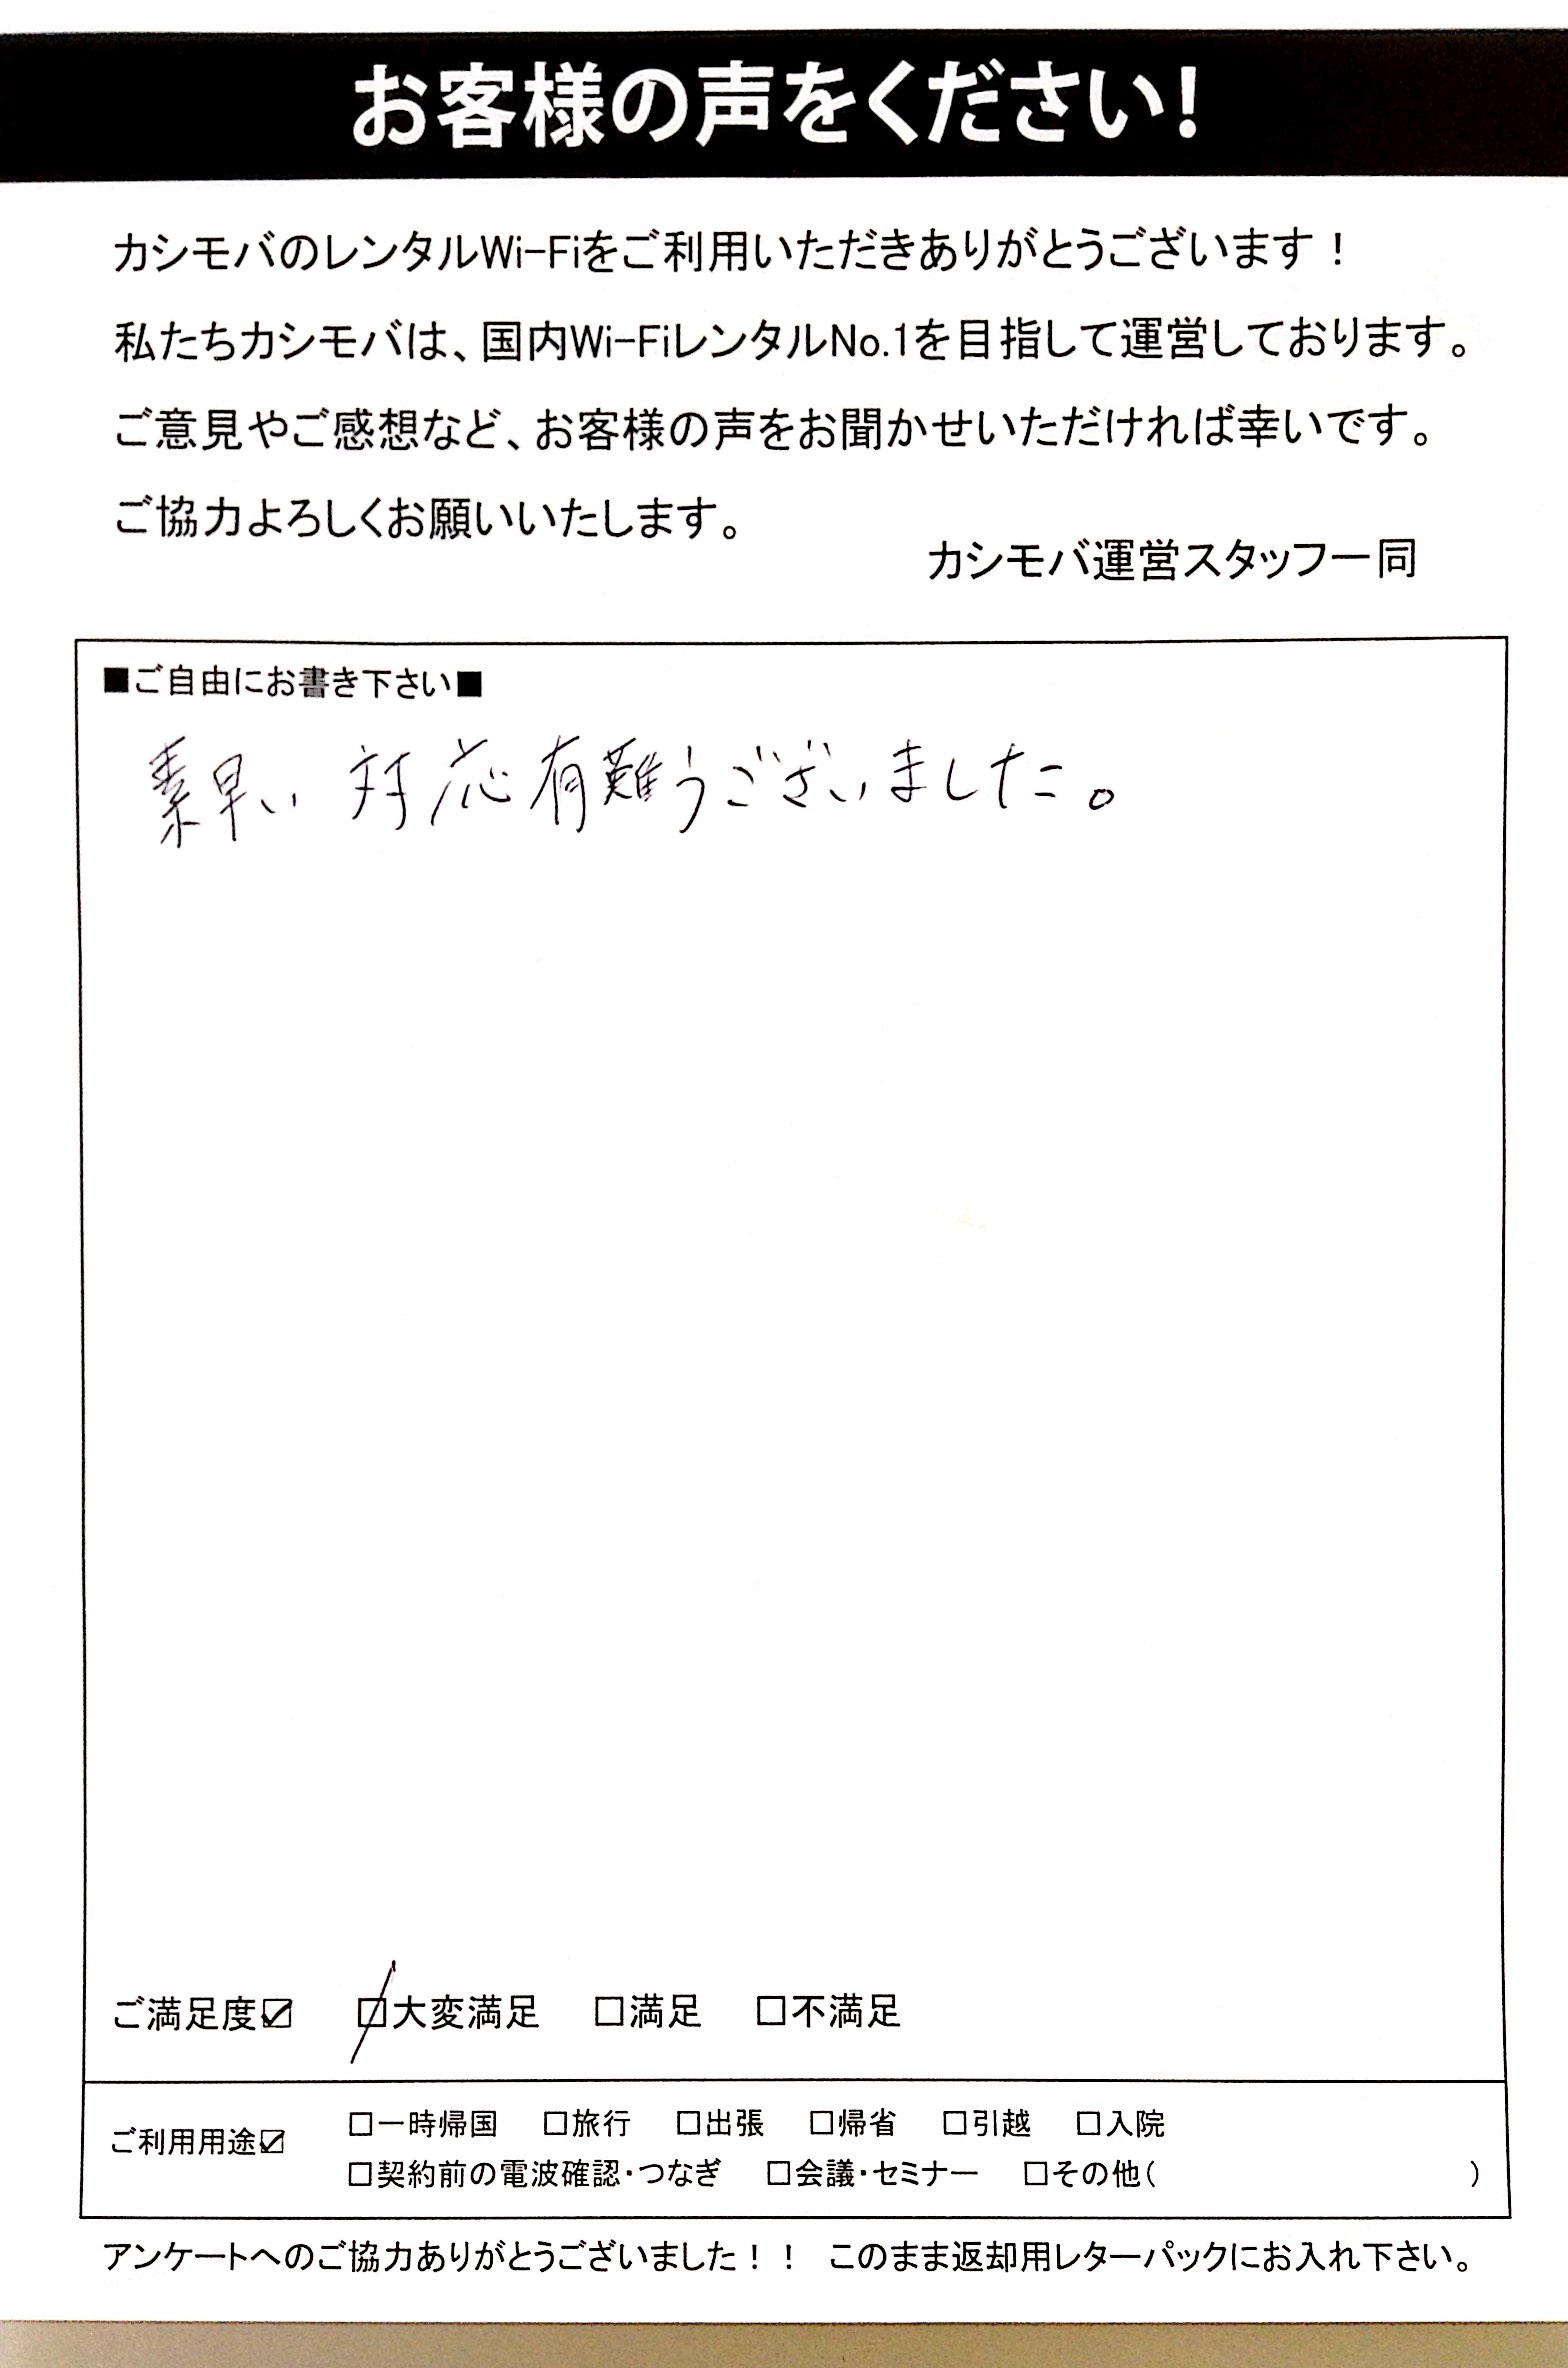 お客様の声をください!
カシモバのレンタルWi-Fiをご利用いただきありがとうございます！
私たちカシモバは、国内Wi-FiレンタルNo.1を目指して運営しております。
ご意見やご感想など、お客様の声をお聞かせいただければ幸いです。
ご協力よろしくお願いいたします。
カシモバ運営スタッフ一同
■ご自由にお書き下さい■
素早い 対応有難うございました。
ご満足度☑ ☑大変満足 □満足 □不満足
ご利用用途☑ □一時帰国 □旅行 □出張 □帰省 □引越 □入院
□契約前の電波確認・つなぎ □会議・セミナー □その他( )
アンケートへのご協力ありがとうございました！！ このまま返却用レターパックにお入れ下さい。